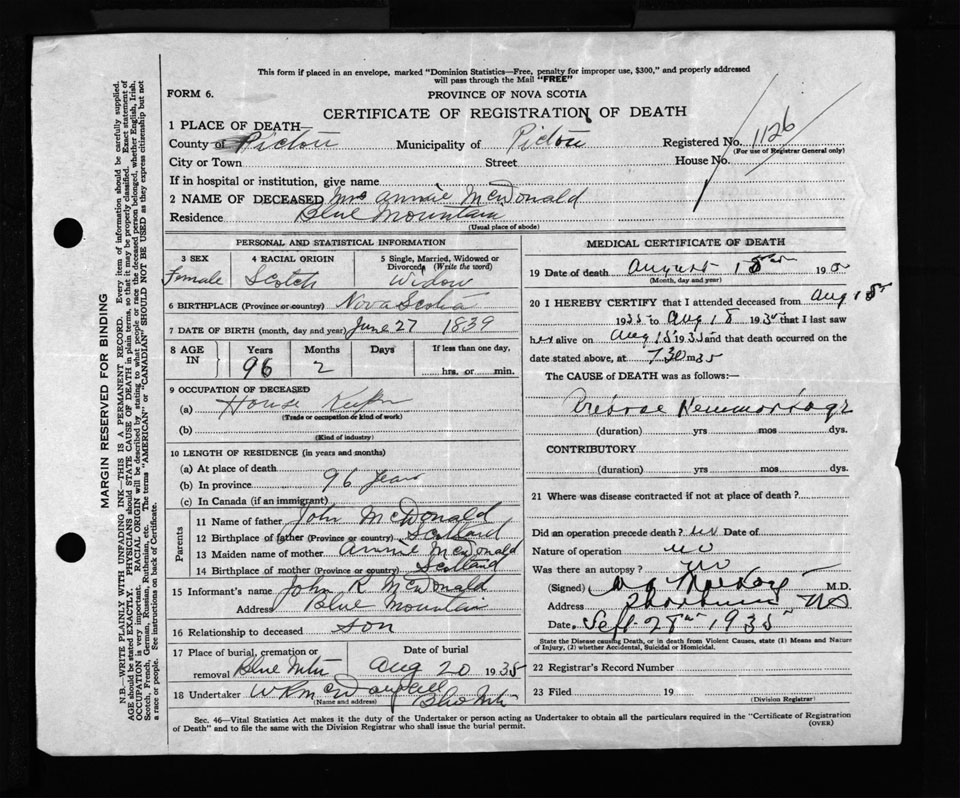 This form if placed in an envelope, marked "Dominion Statistics—Free, penalty for improper use, $300," and properly addressed
will pass through the Mail "FREE"
FORM 6.
PROVINCE OF NOVA SCOTIA
CERTIFICATE OF REGISTRATION OF DEATH
1 PLACE OF DEATH—
County of Pictou Municipality of Pictou Registered No. 1126
(For use of Registrar General only)
City or Town Street House No.
If in hospital or institution, give name
2 NAME OF DECEASED Mrs Annie McDonald
Residence Blue Mountain
(Usual place of abode)
PERSONAL AND STATISTICAL INFORMATION
3 SEX 4 RACIAL ORIGIN 5 Single, Married, Widowed or Divorced (Write the word)
Female Scotch Widow
6 BIRTHPLACE (Province or country) Nova Scotia
7 DATE OF BIRTH (month, day and year) June 27 1839
8 AGE IN Years Months Days If less than one day,
96 2 hrs. or min.
9 OCCUPATION OF DECEASED
(a) House Keeper
(Trade or occupation or kind of work)
(b)
(Kind of industry)
10 LENGTH OF RESIDENCE (in years and months)
(a) At place of death
(b) In province 96 years
(c) In Canada (if an immigrant)
Parents
11 Name of father John McDonald
12 Birthplace of father (Province or country) Scotland
13 Maiden name of mother Annie McDonald
14 Birthplace of mother (Province or country) Scotland
15 Informant's name John R McDonald
Address Blue Mountain
16 Relationship to deceased son
17 Place of burial, cremation or removal Blue Mtn Date of burial Aug 20 1935
18 Undertaker W R McDougall Blue Mtn
(Name and address)
MEDICAL CERTIFICATE OF DEATH
19 Date of death August 18 19
(Month, day and year)
20 I HEREBY CERTIFY that I attended deceased from Aug 18
1935 to Aug 18 1935 that I last saw
her alive on Aug 18 1935 and that death occurred on the
date stated above, at 7.30 m 35
The CAUSE of DEATH was as follows:—
(duration) yrs mos dys.
CONTRIBUTORY
(duration) yrs. mos. dys.
21 Where was disease contracted if not at place of death?
Did an operation precede death? no Date of
Nature of operation no
Was there an autopsy? no
(Signed) M.D.
Address NS
Date Sept 28 1935
State the Disease causing Death, or in death from Violent Causes, state (1) Means and Nature
of Injury, (2) whether Accidental, Suicidal or Homicidal.
22 Registrar's Record Number
23 Filed 19
(Division Registrar)
Sec. 46—Vital Statistics Act makes it the duty of the Undertaker or person acting as Undertaker to obtain all the particulars required in the "Certificate of Registration
of Death" and to file the same with the Division Registrar who shall issue the burial permit. (OVER)
MARGIN RESERVED FOR BINDING
N.B.—WRITE PLAINLY WITH UNFADING INK—THIS IS A PERMANENT RECORD. Every item of information should be carefully supplied.
AGE should be stated EXACTLY. PHYSICIANS should STATE CAUSE OF DEATH in plain terms, so that it may be properly classified. Exact statement of
OCCUPATION is very important. RACIAL ORIGIN will be described by stating to what people or race the deceased person belonged, whether English, Irish,
Scotch, French, German, Russian, Ruthenian, etc. The terms "AMERICAN" or "CANADIAN" SHOULD NOT BE USED as they express citizenship but not
a race or people. See instructions on back of Certificate.